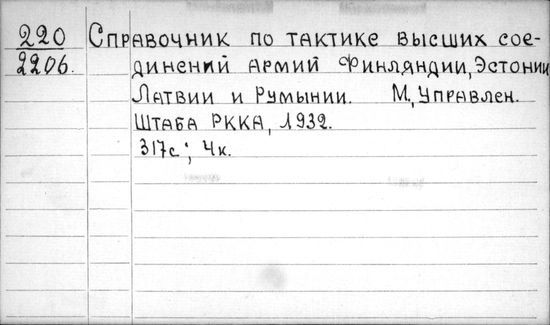 220 Справочник по тактике высших сое-
2206. динений армий Финляндии, Эстонии
Латвии и Румынии. М, Управлен.
Штаба РККА, 1932.
317с; 4к.